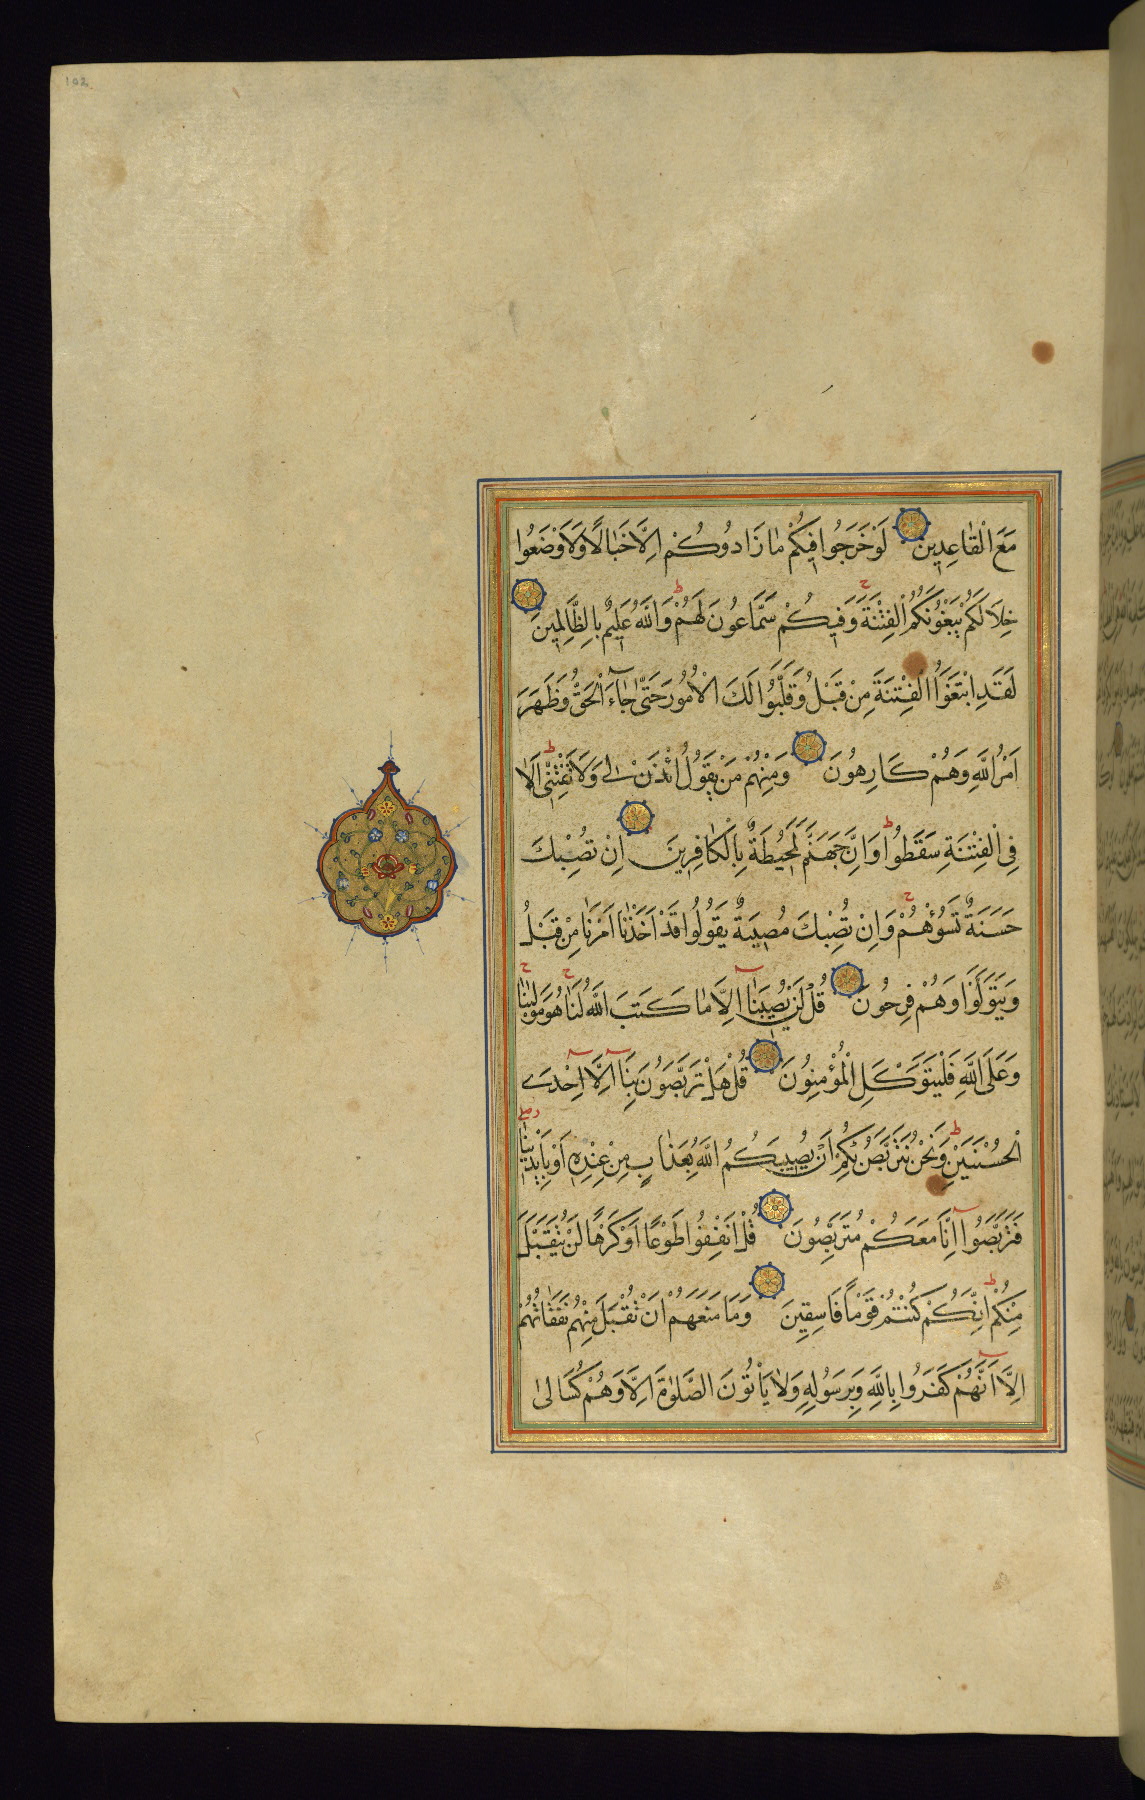 102
مَعَ الْقَاعِدِينَ لَوْ خَرَجُوا فِيكُمْ مَا زَادُوكُمْ اِلَّا خَبَالًا وَلَاَوْضَعُوا
خِلَالَكُمْ يَبْغُونَكُمُ الْفِتْنَةَ ح وَفِيكُمْ سَمَّاعُونَ لَهُمْ ط وَاللّٰهُ عَلِيمٌ بِالظَّالِمِينَ
لَقَدِ ابْتَغَوُا الْفِتْنَةَ مِنْ قَبْلُ وَقَلَّبُوا لَكَ الْاُمُورَ حَتّٰى جَاءَ الْحَقُّ وَظَهَرَ
اَمْرُ اللّٰهِ وَهُمْ كَارِهُونَ وَمِنْهُمْ مَنْ يَقُولُ ائْذَنْ لِى وَلَا تَفْتِنّٖى ط اَلَا
فِى الْفِتْنَةِ سَقَطُوا ط وَاِنَّ جَهَنَّمَ لَمُحِيطَةٌ بِالْكَافِرِينَ اِنْ تُصِبْكَ
حَسَنَةٌ تَسُؤْهُمْ ح وَاِنْ تُصِبْكَ مُصِيبَةٌ يَقُولُوا قَدْ اَخَذْنَا اَمْرَنَا مِنْ قَبْلُ
وَيَتَوَلَّوْا وَهُمْ فَرِحُونَ قُلْ لَنْ يُصِيبَنَا اِلَّا مَا كَتَبَ اللّٰهُ لَنَا ح هُوَ مَوْلٰينَا ح
وَعَلَى اللّٰهِ فَلْيَتَوَكَّلِ الْمُؤْمِنُونَ قُلْ هَلْ تَرَبَّصُونَ بِنَا اِلَّا اِحْدَى
الْحُسْنَيَيْنِ ط وَنَحْنُ نَتَرَبَّصُ بِكُمْ اَنْ يُصِيبَكُمُ اللّٰهُ بِعَذَابٍ مِنْ عِنْدِهِ اَوْ بِاَيْدِينَا
فَتَرَبَّصُوا اِنَّا مَعَكُمْ مُتَرَبِّصُونَ قُلْ اَنْفِقُوا طَوْعًا اَوْ كَرْهًا لَنْ يُتَقَبَّلَ
مِنْكُمْ ط اِنَّكُمْ كُنْتُمْ قَوْمًا فَاسِقِينَ وَمَا مَنَعَهُمْ اَنْ تُقْبَلَ مِنْهُمْ نَفَقَاتُهُمْ
اِلَّا اَنَّهُمْ كَفَرُوا بِاللّٰهِ وَبِرَسُولِهِ وَلَا يَأْتُونَ الصَّلٰوةَ اِلَّا وَهُمْ كُسَالٰى